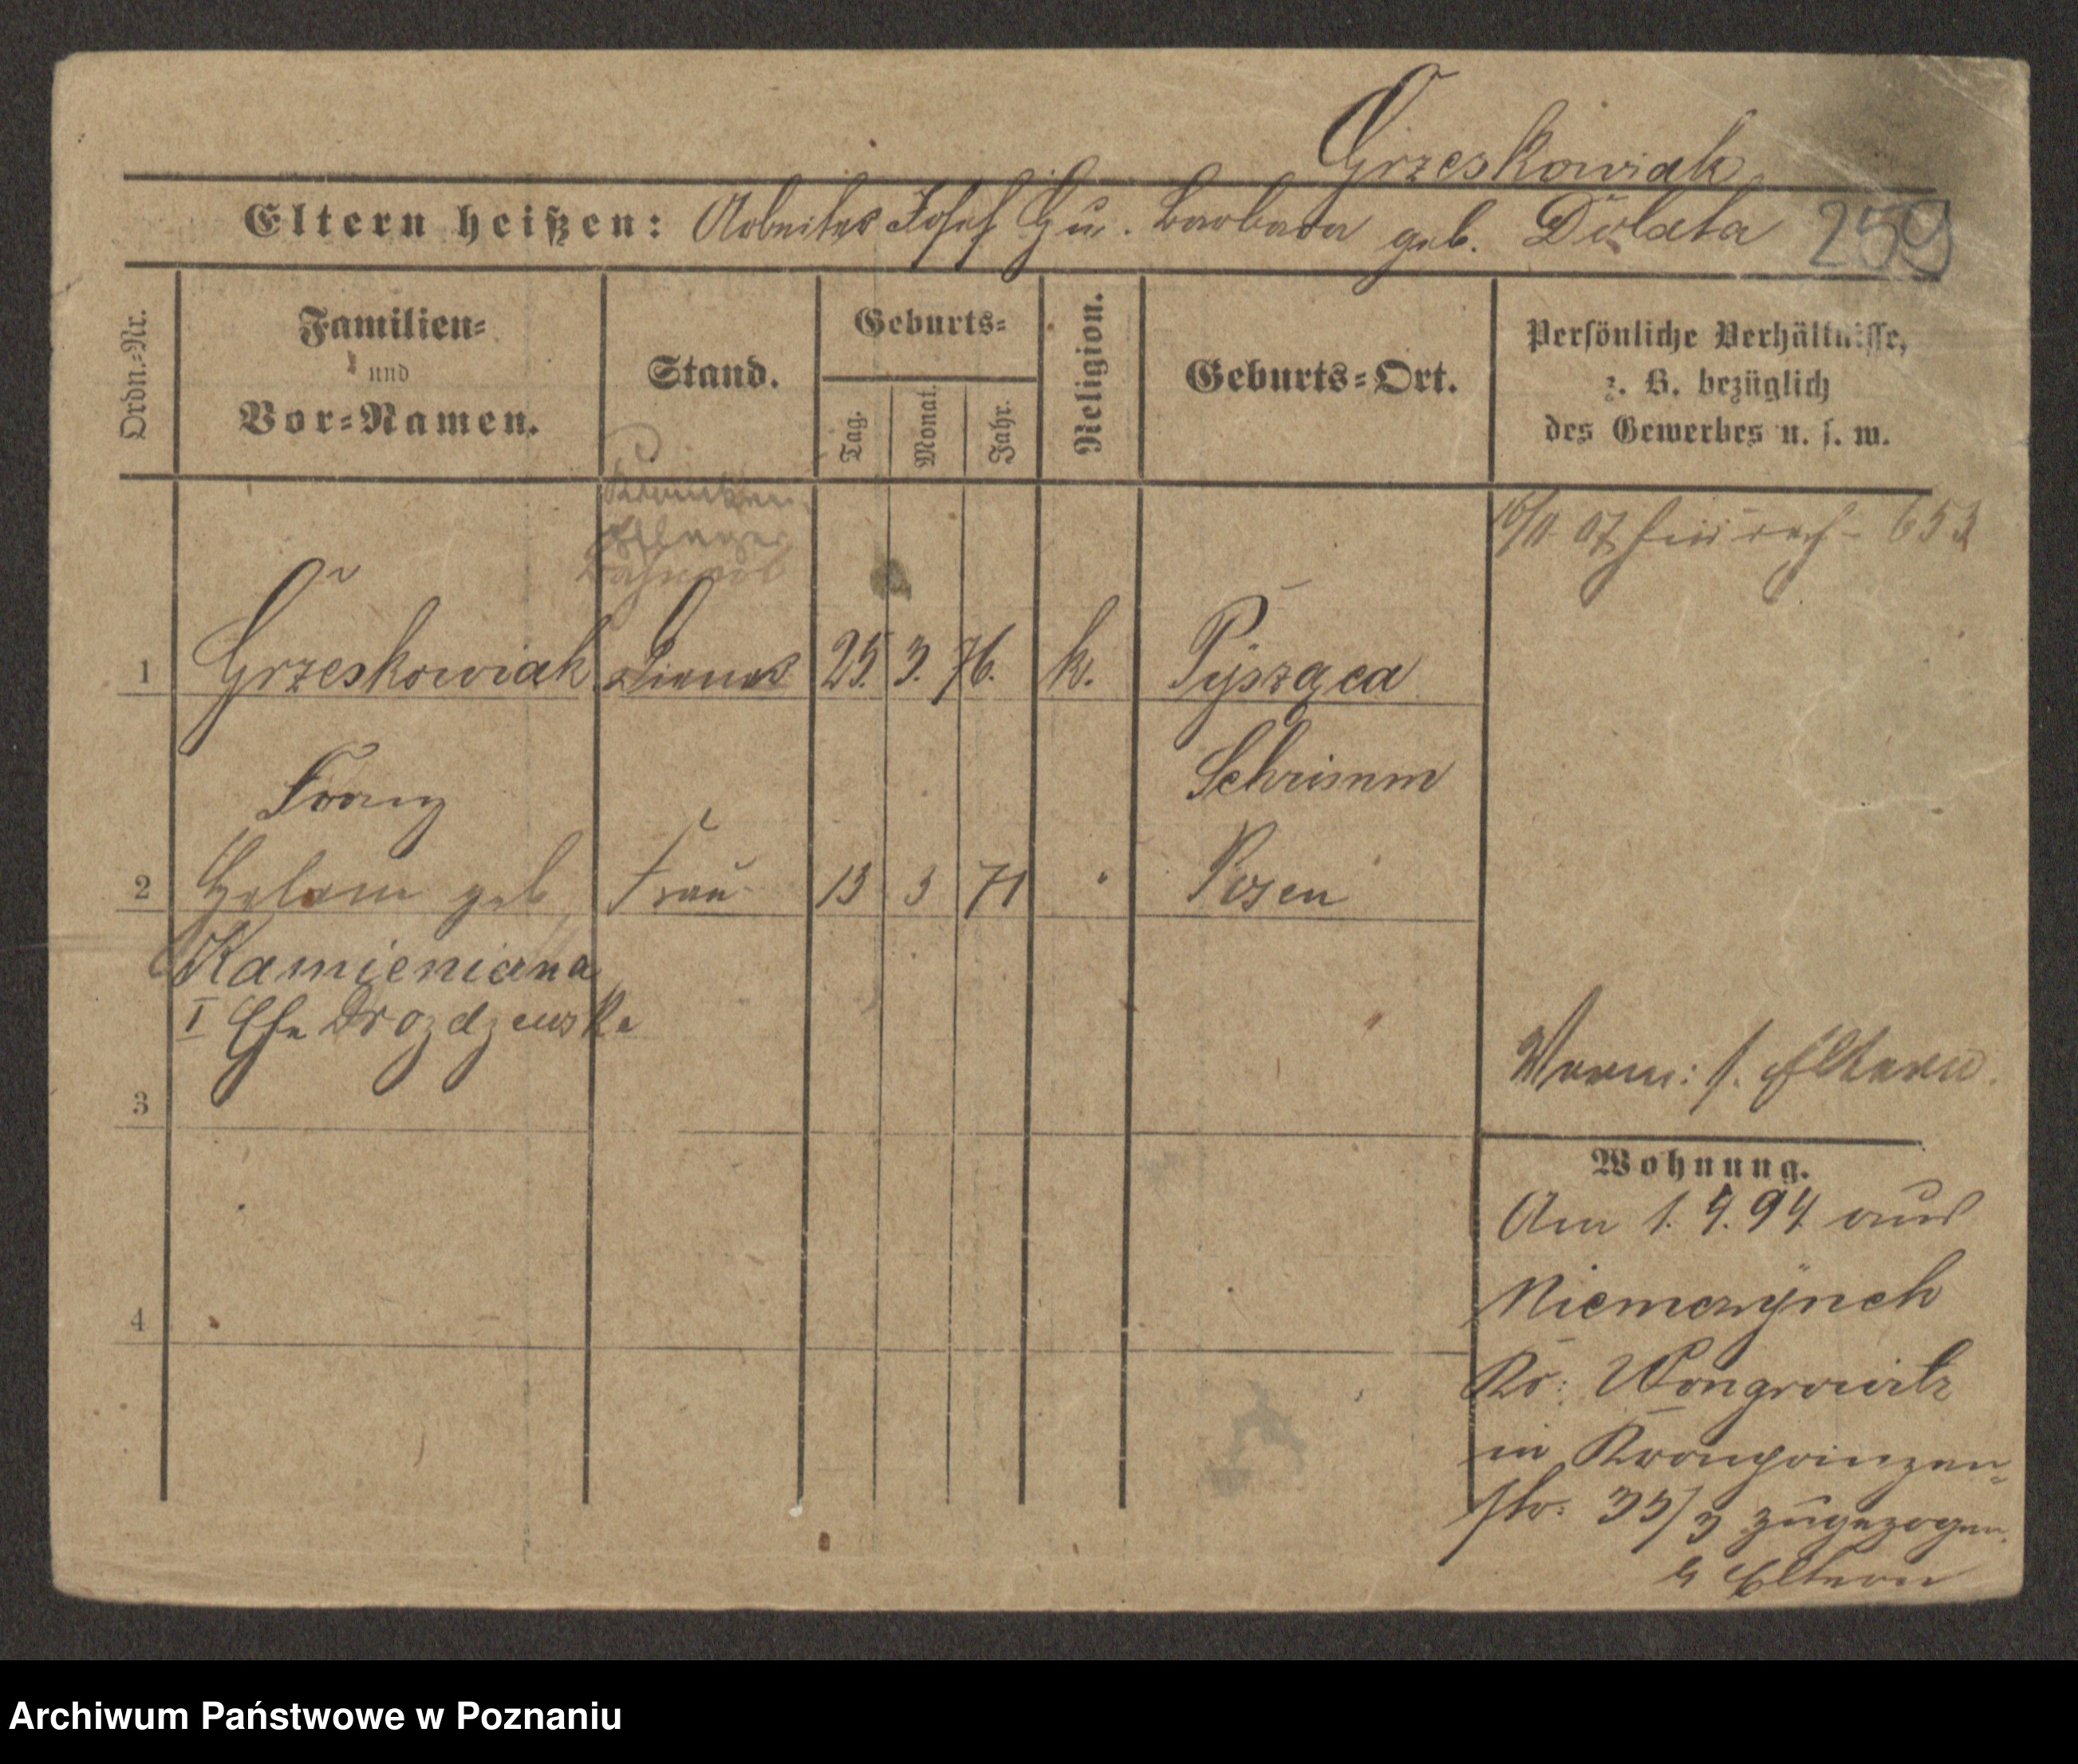 Grzeskowiak
Eltern heißen: Arbeiter Josef G. u. Barbara geb. Dolata 259
Ordn.-Nr.
Familien-
und
Vor-Namen.
Stand.
Geburts-
Tag.
Monat.
Jahr.
Religion.
Geburts-Ort.
Persönliche Verhältnisse,
z. B. bezüglich
des Gewerbes u. s. w.
Kranken-
pfleger
16/11 07 653
1 Grzeskowiak Diener 25. 3. 76. k. Pysząca
Franz Schrimm
2 Helene geb. Frau 13 3 71 " Posen
Kamieniana
I Ehe Drozdzewska
3
4
Verm: s. Eltern.
Wohnung.
Am 1. 4. 94 aus
Niemczynek
Kr: Wongrowitz
in Kronprinzen-
str. 35/3 zugezogen.
Eltern
Archiwum Państwowe w Poznaniu